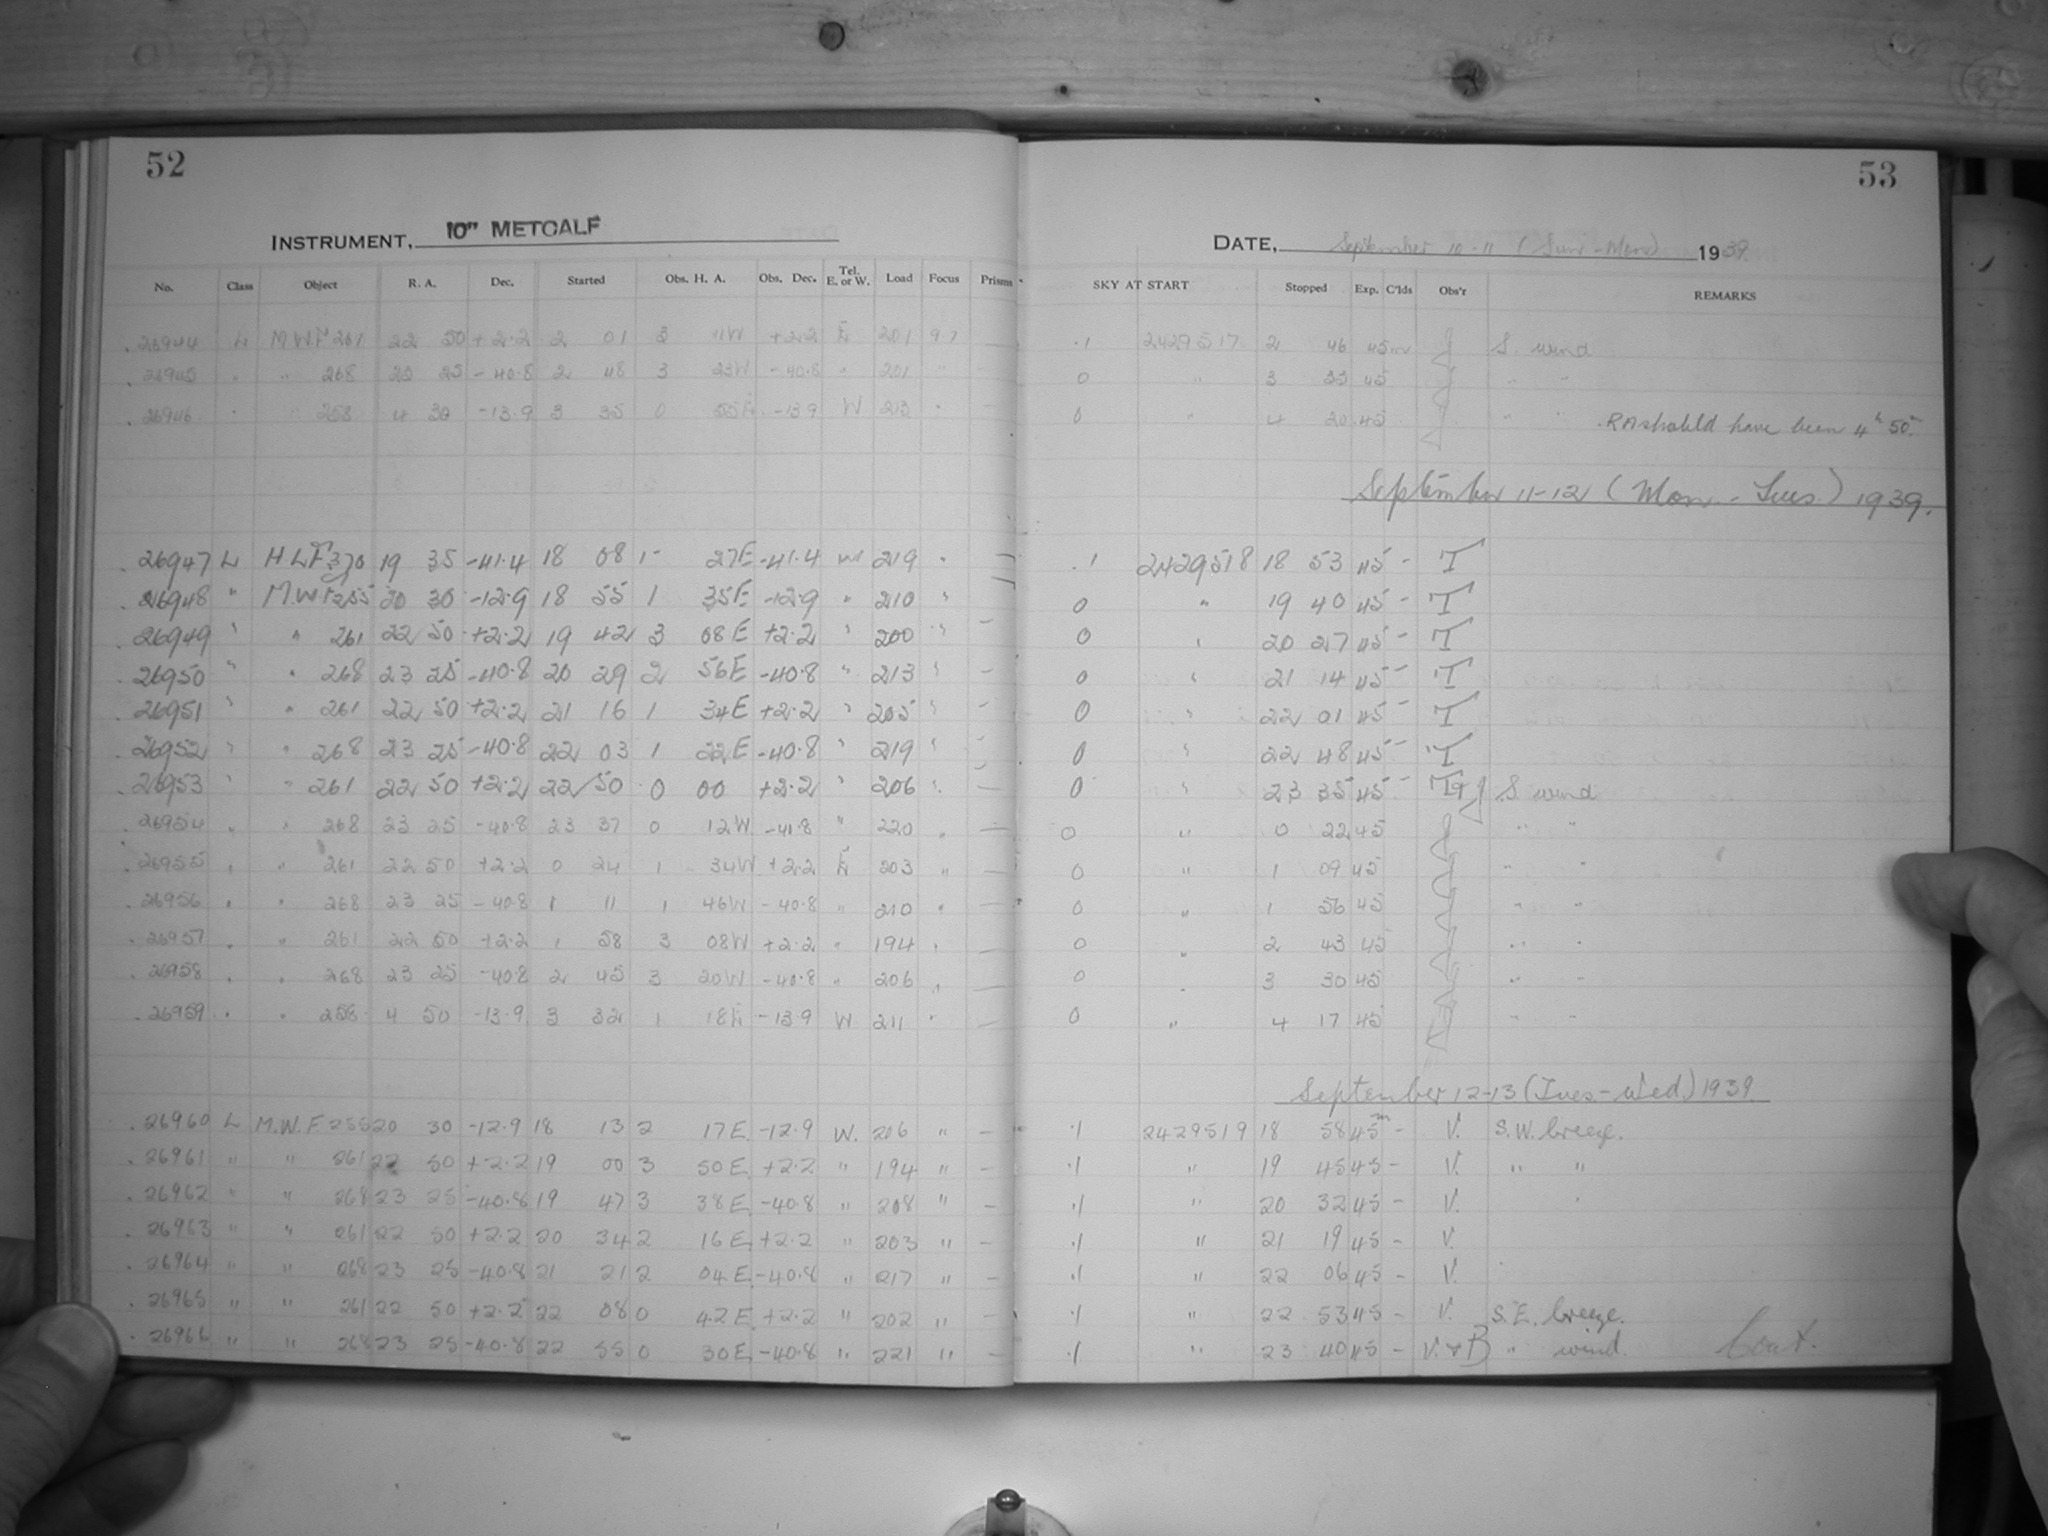 52
53
INSTRUMENT, 10" METCALF
DATE, September 10-11 (Sun-Mon) 1939
No. Class Object R. A. Dec. Started Obs. H. A. Obs. Dec. Tel. E. or W. Load Focus Prisms SKY AT START Stopped Exp. C'lds Obs'r REMARKS
26944 L M W F 261 22 50 +2.2 2 01 3 11W +2.2 E 201 9.7 .1 2429517 2 46 45m S. wind
26945 " " 268 23 25 -40.8 2 48 3 23W -40.8 " 201 " 0 " 3 33 45 " "
26946 " " 258 4 30 -13.9 3 35 0 55E -13.9 W 213 " – 0 " 4 20 45 " " RA should have been 4h 50
September 11-12 (Mon.-Tues.) 1939.
26947 L H.L.F 370 19 35 -41.4 18 08 1 27E -41.4 W 219 " – .1 2429518 18 53 45 - T
26948 " M.W.F 255 20 30 -12.9 18 55 1 35E -12.9 " 210 " – 0 " 19 40 45 - T
26949 " " 261 22 50 +2.2 19 42 3 08E +2.2 " 200 " – 0 " 20 27 45 - T
26950 " " 268 23 25 -40.8 20 29 2 56E -40.8 " 213 " – 0 " 21 14 45 - T
26951 " " 261 22 50 +2.2 21 16 1 34E +2.2 " 205 " – 0 " 22 01 45 - T
26952 " " 268 23 25 -40.8 22 03 1 22E -40.8 " 219 " – 0 " 22 48 45 - T
26953 " " 261 22 50 +2.2 22 50 0 00 +2.2 " 206 " – 0 " 23 35 45 - T+J S. wind
26954 " " 268 23 25 -40.8 23 37 0 12W -40.8 " 220 " – 0 " 0 22 45 J " "
26955 " " 261 22 50 +2.2 0 24 1 34W +2.2 E 203 " – 0 " 1 09 45 " "
26956 " " 268 23 25 -40.8 1 11 1 46W -40.8 " 210 " – 0 " 1 56 45 " "
26957 " " 261 22 50 +2.2 1 58 3 08W +2.2 " 194 " – 0 " 2 43 45 " "
26958 " " 268 23 25 -40.8 2 45 3 20W -40.8 " 206 " – 0 " 3 30 45 " "
26959 " " 258 4 50 -13.9 3 32 1 18E -13.9 W 211 " – 0 " 4 17 45 " "
September 12-13 (Tues-Wed.) 1939
26960 L M.W.F. 255 20 30 -12.9 18 13 2 17E -12.9 W. 206 " – .1 2429519 18 58 45m - V. S.W. breeze.
26961 " " 261 22 50 +2.2 19 00 3 50E +2.2 " 194 " – .1 " 19 45 45 - V. " "
26962 " " 268 23 25 -40.8 19 47 3 38E -40.8 " 208 " – .1 " 20 32 45 - V. "
26963 " " 261 22 50 +2.2 20 34 2 16E +2.2 " 203 " – .1 " 21 19 45 - V.
26964 " " 268 23 25 -40.8 21 21 2 04E -40.8 " 217 " – .1 " 22 06 45 - V.
26965 " " 261 22 50 +2.2 22 08 0 42E +2.2 " 202 " – .1 " 22 53 45 - V. S.E. breeze.
26966 " " 268 23 25 -40.8 22 55 0 30E -40.8 " 221 " – .1 " 23 40 45 - V.+B " wind. Cont.